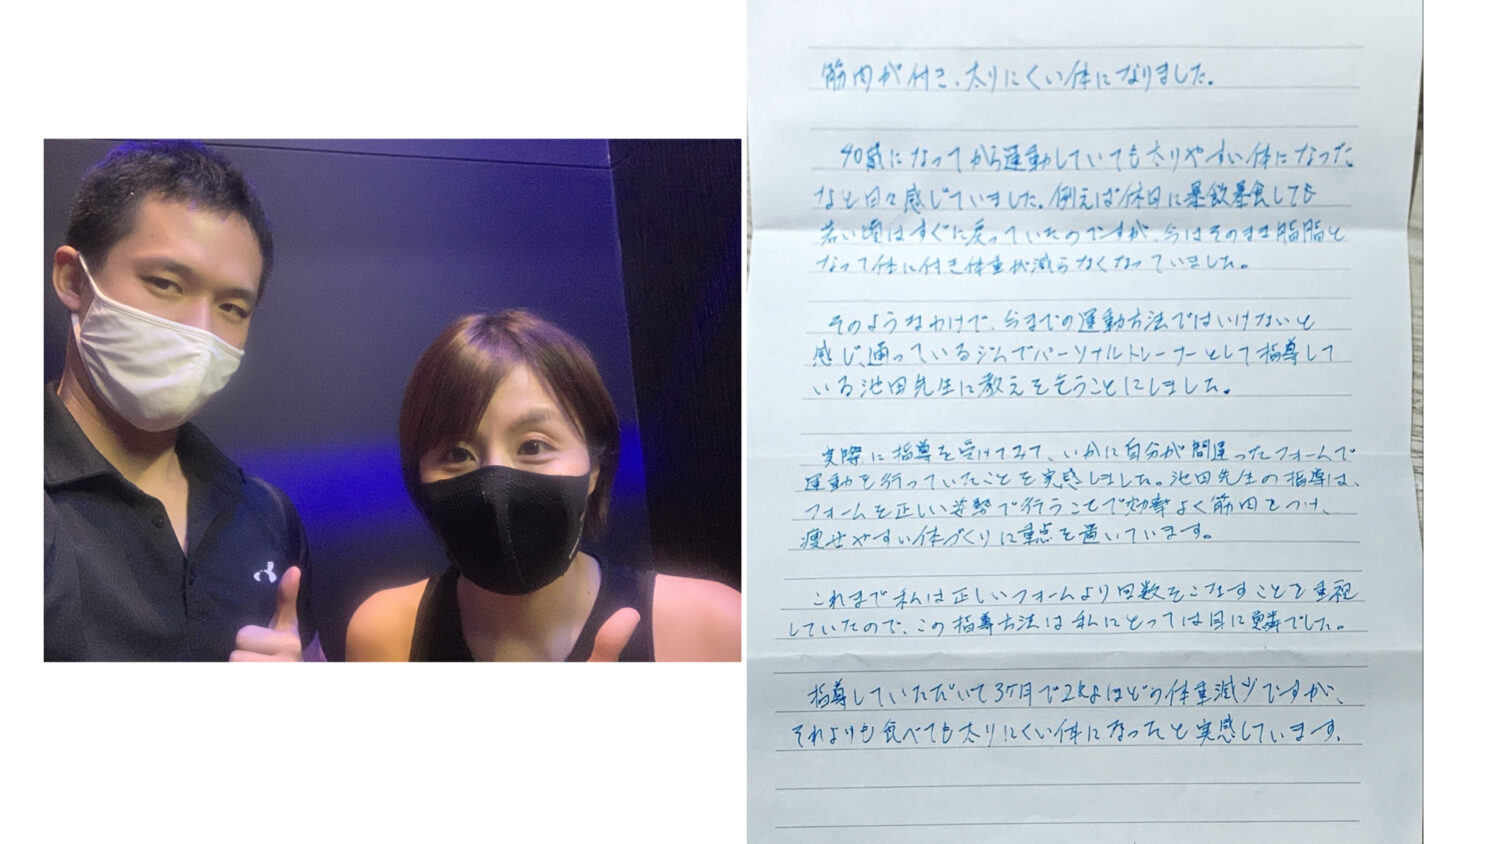 筋肉が付き、太りにくい体になりました。
40歳になってから運動していても太りやすい体になった
なと日々感じていました。例えば休日に暴飲暴食しても
若い頃はすぐに戻っていたのですが、今はそのまま脂肪と
なって体に付き体重が減らなくなっていました。
そのようなわけで、今までの運動方法ではいけないと
感じ、通っているジムでパーソナルトレーナーとして指導して
いる池田先生に教えを乞うことにしました。
実際に指導を受けてみて、いかに自分が間違ったフォームで
運動を行っていたことを実感しました。池田先生の指導は、
フォームを正しい姿勢で行うことで効率よく筋肉をつけ、
痩せやすい体づくりに重点を置いています。
これまで私は正しいフォームより回数をこなすことを重視
していたので、この指導方法は私にとっては目に鱗でした。
指導していただいて3ヶ月で2kgほどの体重減少ですが、
それよりも食べても太りにくい体になったと実感しています。